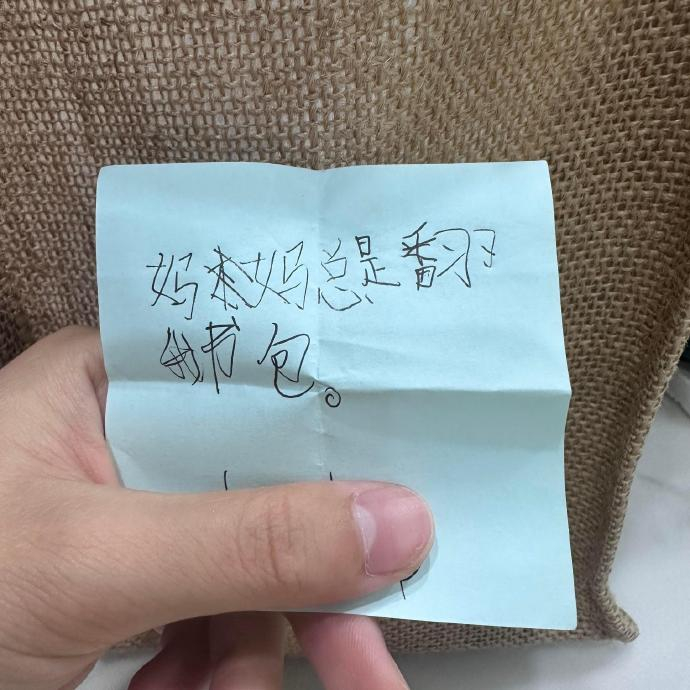 妈妈总是翻
书包。